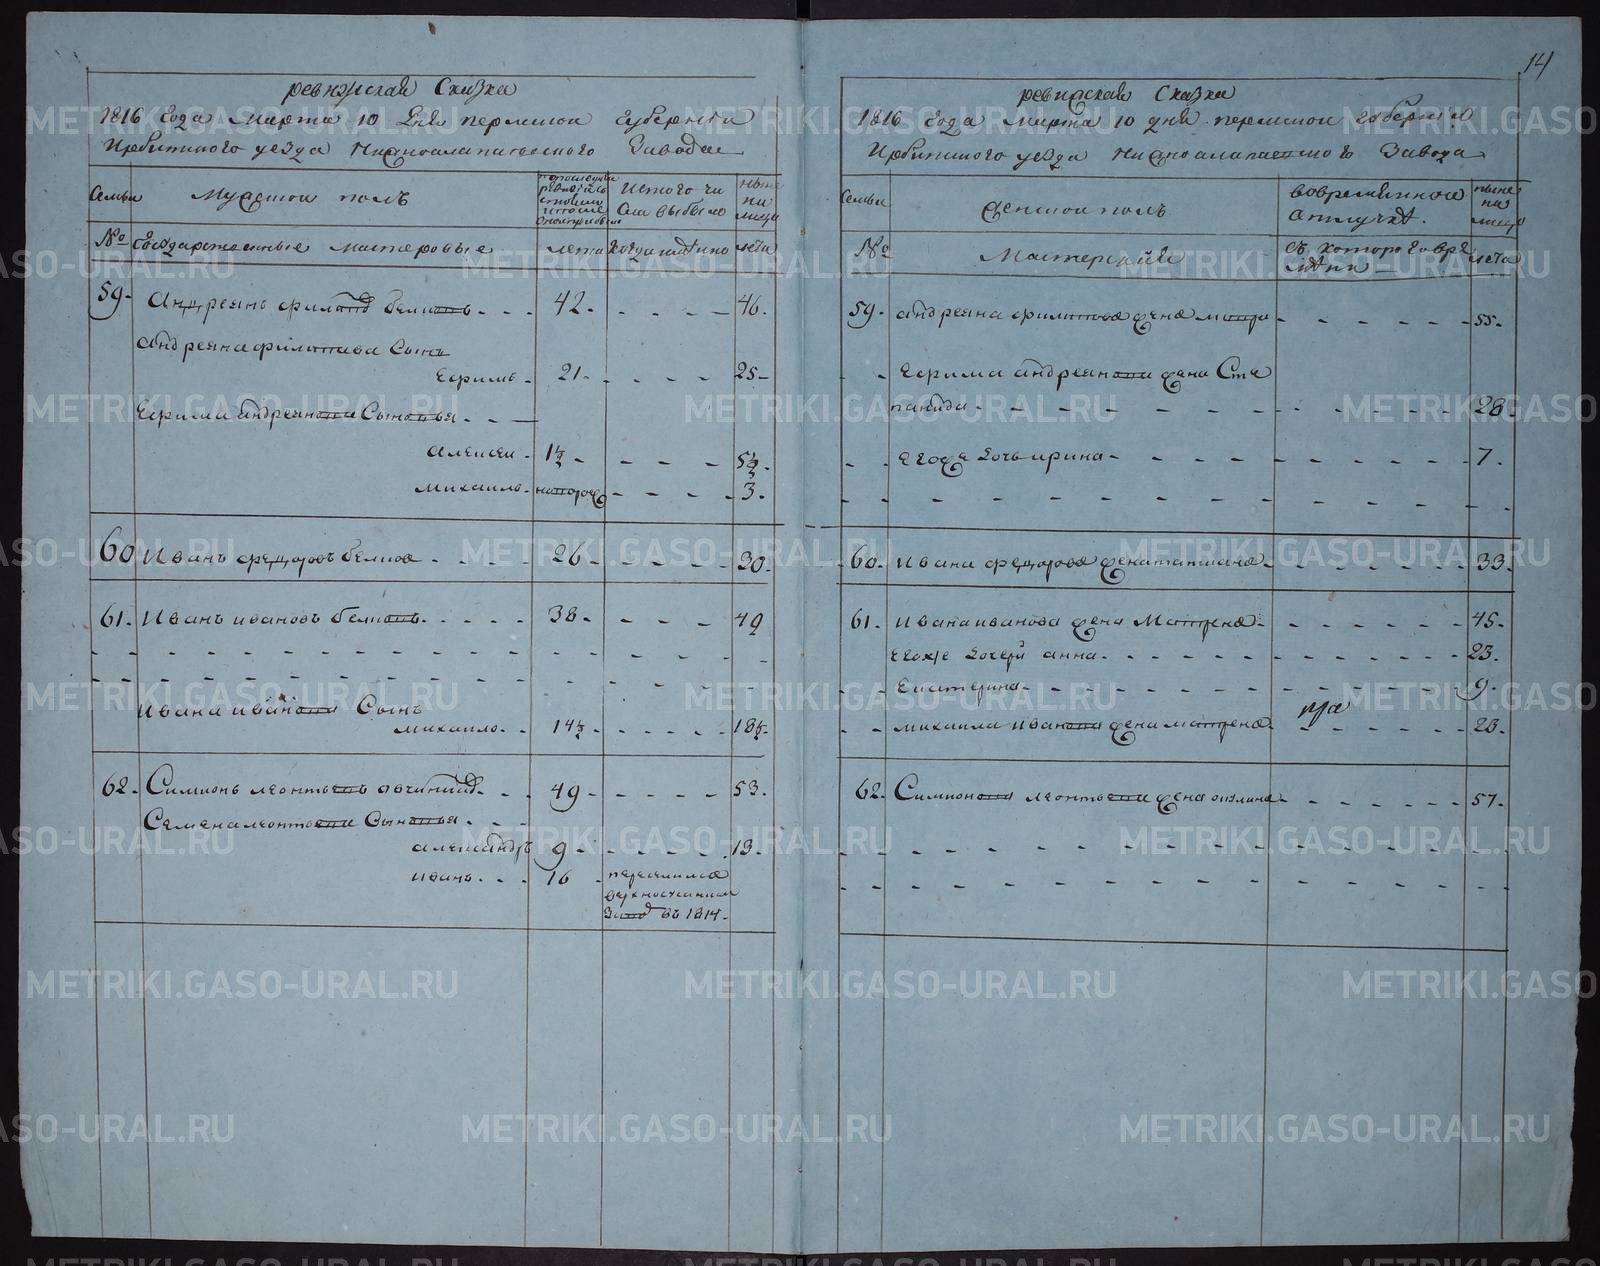 14
ревижская Сказка
1816 Года Марта 10 Дня пермской Губернии
Ирбитского уезда Нижноалапаевского Завода
Семьи
Мужской полъ
Изтого чи
сла выбыло
ныне
на
лицо
№
Государственные мастеровые
лета
когда имянно
лета
59.
Андреянъ филатовъ белковъ
42
46.
Андреяна филатова Сынъ
Ефримъ
21
25
Ефрима андреянова Сыновья
алексеи
1½
5½
михаилъ
3.
60
Иванъ федоровъ белков
26
30
61.
Иванъ ивановъ белковъ
38
49
Ивана иванова Сынъ
михаило
14½
18½
62.
Симионъ леонтьевъ
49
53.
Семена леонтьева Сыновья
александръ
9
13.
иванъ
16
переселился
Заводъ въ 1814
ревизская Сказка
1816 Года марта 10 дня пермской губернии
Ирбитского уезда Нижноалапаевского Завода
Семьи
женской полъ
вовременной
отлучке
ныне
на
лицо
№
Мастерския
съ котораго вре
мяни
лета
59.
андреяна филатова жена
55.
Ефрима андреянова жена Сте
панида
28.
Егоже дочь ирина
7.
60.
Ивана федорова жена татиана
33.
61.
Ивана иванова жена Матрена
45.
Егоже дочери анна
23.
Екатерина
9.
михаила иванова жена матрена
23.
62.
Симиона леонтьева жена
57.
METRIKI.GASO-URAL.RU